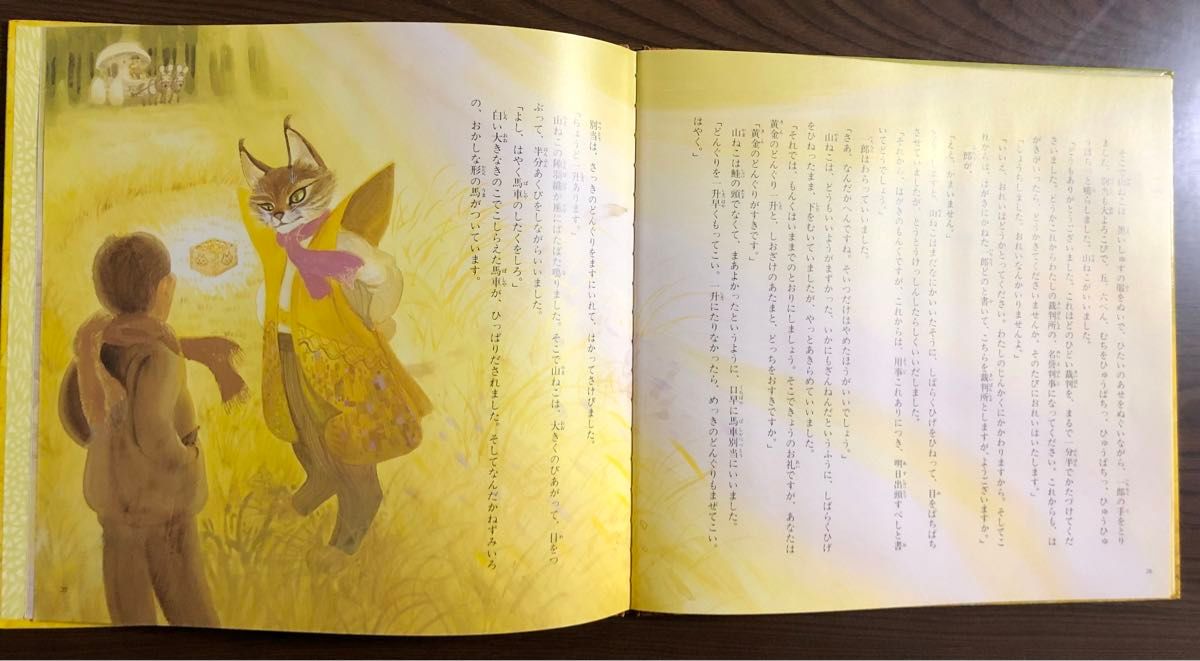 そこで山ねこは、黒いしゅすの服をぬいで、ひたいのあせをぬぐいながら、一郎の手をとり
ました。別当も大よろこびで、五、六ぺん、むちをひゅうぱちっ、ひゅうぱちっ、ひゅうひゅ
うぱちっと鳴らしました。山ねこがいいました。
「どうもありがとうございました。これほどのひどい裁判を、まるで一分半でかたづけてくだ
さいました。どうかこれからわたしの裁判所の、名誉判事になってください。これからも、は
がきがいったら、どうかきてくださいませんか。そのたびにお礼はいたします。」
「しょうちしました。お礼なんかいりませんよ。」
「いいえ、お礼はどうかとってください。わたしのじんかくにかかわりますから。そしてこ
れからは、はがきにかねた一郎どのと書いて、こちらを裁判所としますが、ようございますか。」
一郎が、
「ええ、かまいません。」
山ねこはまだなにかいいたそうに、しばらくひげをひねって、目をぱちぱち
させていましたが、とうとうけっしんしたらしくいいだしました。
「それから、はがきのもんくですが、これからは、用事これありにつき、明日出頭すべしと書
いてどうでしょう。」
一郎はわらっていいました。
「さあ、なんだかへんですね。そいつだけはやめたほうがいいでしょう。」
山ねこは、どうもいいようがまずかった、いかにもざんねんだというふうに、しばらくひげ
をひねったまま、下をむいていましたが、やっとあきらめていいました。
「それでは、もんくはいままでのとおりにしましょう。そこできょうのお礼ですが、あなたは
黄金のどんぐり一升と、しおざけのあたまと、どっちをおすきですか。」
「黄金のどんぐりがすきです。」
山ねこは鮭の頭でなくて、まあよかったというように、口早に馬車別当にいいました。
「どんぐりを一升早くもってこい。一升にたりなかったら、めっきのどんぐりもまぜてこい。
はやく。」
28
別当は、さっきのどんぐりをますにいれて、はかってさけびました。
「ちょうど一升あります。」
山ねこの陣羽織が風にばたばた鳴りました。そこで山ねこは、大きくのびあがって、目をつ
ぶって、半分あくびをしながらいいました。
「よし、はやく馬車のしたくをしろ。」
白い大きなきのこでこしらえた馬車が、ひっぱりだされました。そしてなんだかねずみいろ
の、おかしな形の馬がついています。